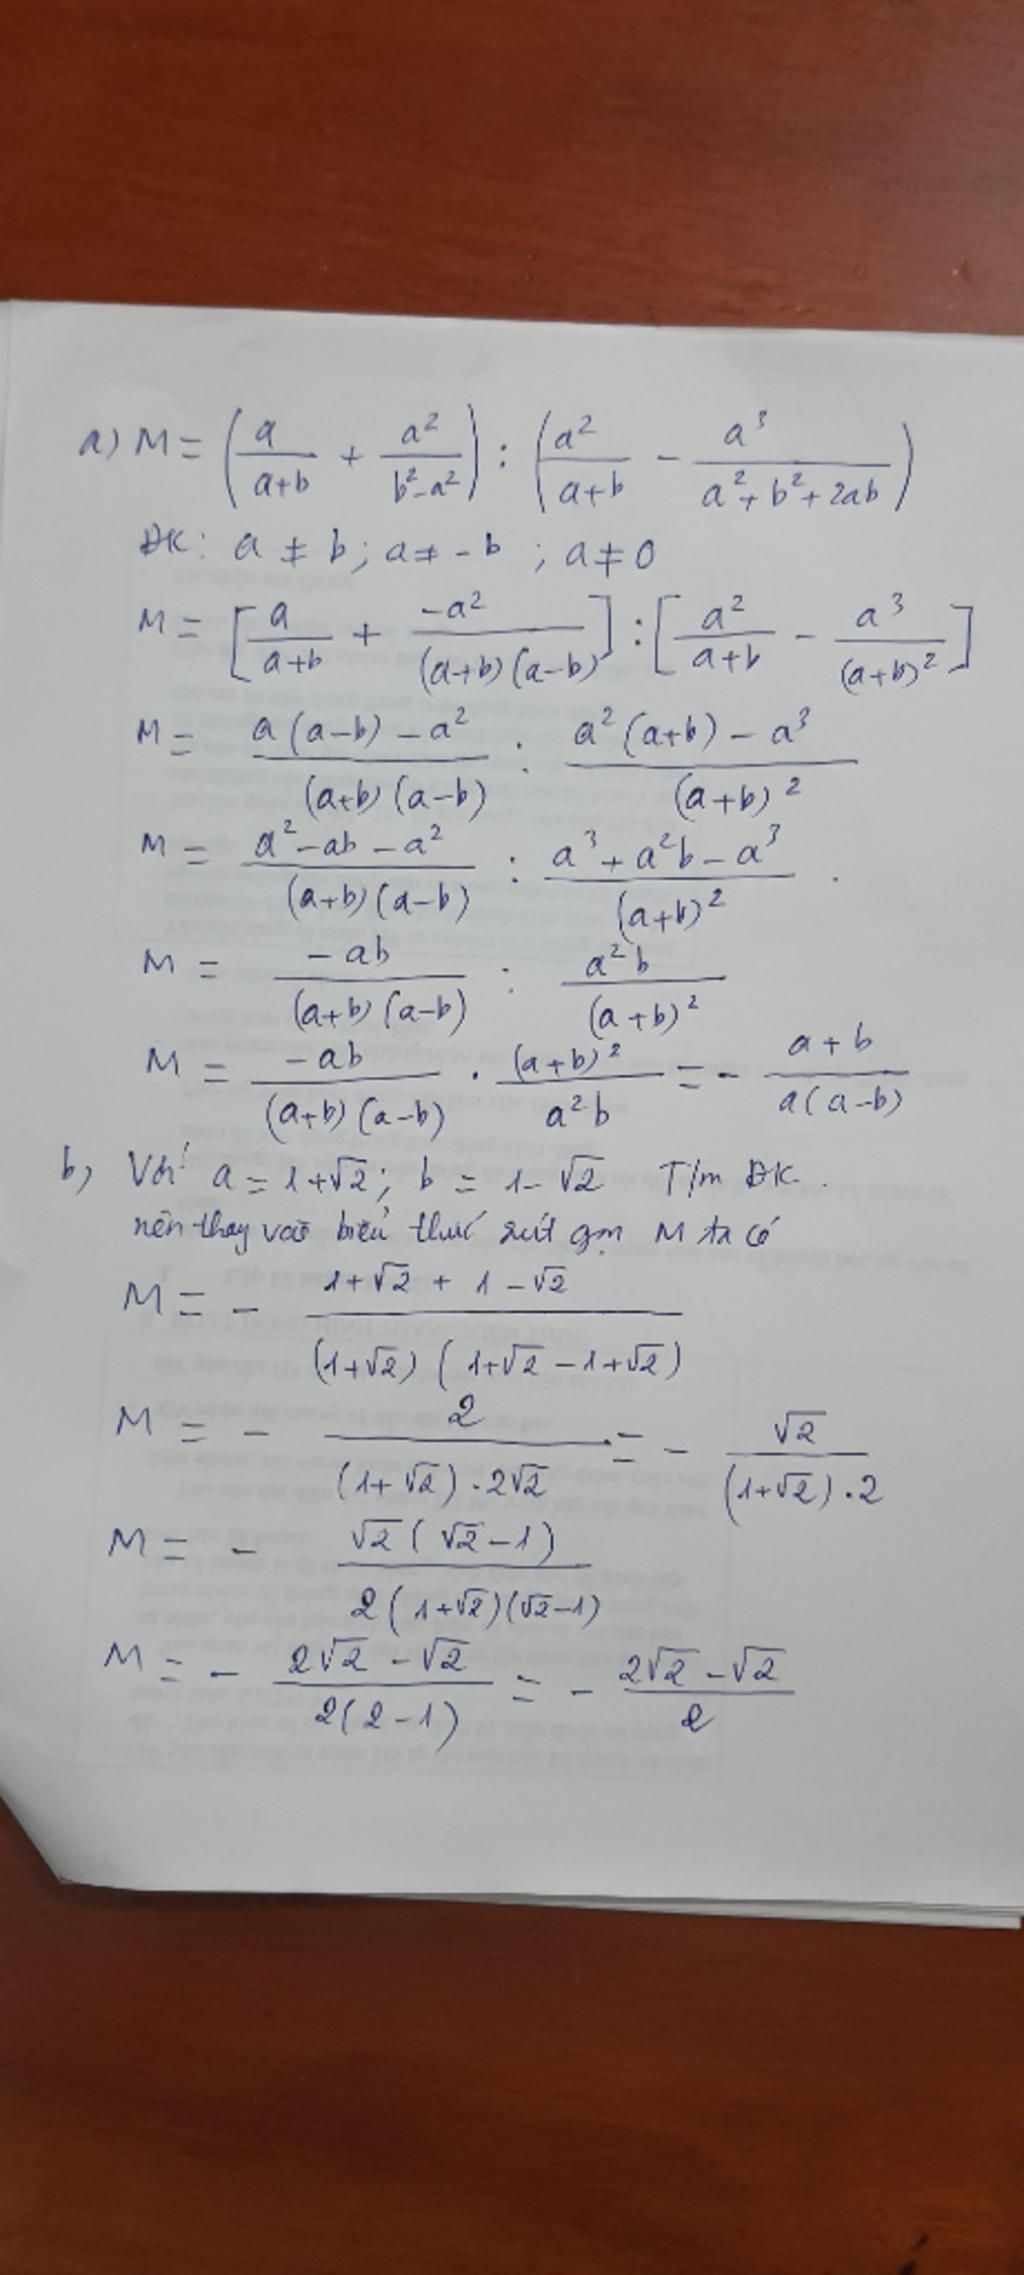 a) M = (a/(a+b) + a²/(b²-a²)) : (a²/(a+b) - a³/(a²+b²+2ab))
ĐK: a ≠ b ; a ≠ -b ; a ≠ 0
M = [a/(a+b) + -a²/((a+b)(a-b))] : [a²/(a+b) - a³/(a+b)²]
M = (a(a-b) - a²)/((a+b)(a-b)) : (a²(a+b) - a³)/(a+b)²
M = (a² - ab - a²)/((a+b)(a-b)) : (a³ + a²b - a³)/(a+b)²
M = -ab/((a+b)(a-b)) : a²b/(a+b)²
M = -ab/((a+b)(a-b)) . (a+b)²/(a²b) = - (a+b)/(a(a-b))
b) Với a = 1+√2 ; b = 1-√2 T/m ĐK.
nên thay vào biểu thức rút gọn M ta có
M = - (1+√2 + 1-√2)/((1+√2)(1+√2 - 1+√2))
M = - 2/((1+√2).2√2) = - √2/((1+√2).2)
M = - √2(√2-1)/(2(1+√2)(√2-1))
M = - (2√2 - √2)/(2(2-1)) = - (2√2 - √2)/2